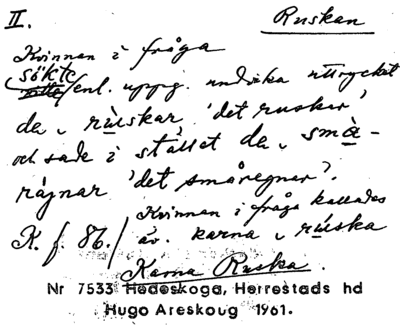 II.
Ruskan
Kvinnan i fråga
sökte
enl. uppg. undvika uttrycket
de ruskar 'det ruskar'
och sade i stället de små-
rägnar 'det småregnar'.
Kvinnan i fråga kallades
K. f. 86. / äv. karna ruska
Karna Ruska.
Nr 7533 Hedeskoga, Herrestads hd
Hugo Areskoug 1961.